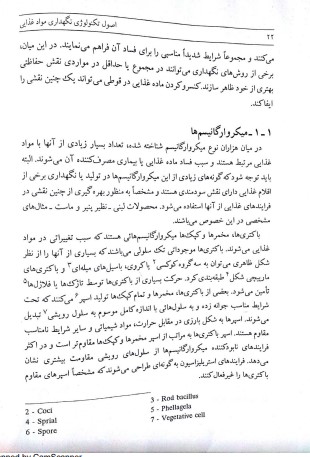 اصول تکنولوژی نگهداری مواد غذایی
۲۲
می‌کنند و مجموعاً شرایط شدیداً مناسبی را برای فساد آن فراهم می‌نمایند. در این میان،
برخی از روش‌های نگهداری می‌توانند در مجموع یا حداقل در مواردی نقش حفاظتی
بهتری از خود ظاهر سازند. کنسرو کردن ماده غذایی در قوطی می‌تواند یک چنین نقشی را
ایفا کند.
۱-۱-میکروارگانیسم‌ها
در میان هزاران نوع میکروارگانیسم شناخته شده، تعداد بسیار زیادی از آنها با مواد
غذایی مرتبط هستند و سبب فساد ماده غذایی یا بیماری مصرف‌کننده آن می‌شوند. البته
باید توجه شود که گونه‌های زیادی از این میکروارگانیسم‌ها در تولید یا نگهداری برخی از
اقلام غذایی دارای نقش سودمندی هستند و مشخصاً به منظور بهره‌گیری از چنین نقشی در
فرایندهای غذایی از آنها استفاده می‌شود. محصولات لبنی ـ نظیر پنیر و ماست ـ مثال‌های
مشخصی در این خصوص می‌باشند.
باکتری‌ها، مخمرها و کپک‌ها میکروارگانیسم‌هائی هستند که سبب تغییراتی در مواد
غذایی می‌شوند. باکتری‌ها موجوداتی تک سلولی می‌باشند که بسیاری از آنها را از نظر
شکل ظاهری می‌توان به سه گروه کوکسی۲ یا کروی، باسیل‌های میله‌ای۳ و باکتری‌های
مارپیچی شکل۴ طبقه‌بندی کرد. حرکت بسیاری از باکتری‌ها توسط تاژک‌ها یا فلاژل‌ها۵
تأمین می‌شود. بعضی از باکتری‌ها، مخمرها و تمام کپک‌ها تولید اسپر۶ می‌کنند که تحت
شرایط مناسب جوانه زده و به سلول‌هائی با اندازه کامل موسوم به سلول رویشی۷ تبدیل
می‌شوند. اسپرها به شکل بارزی در مقابل حرارت، مواد شیمیائی و سایر شرایط نامناسب
مقاوم هستند. اسپر باکتری‌ها به مراتب از اسپر مخمرها و کپک‌ها مقاوم‌تر است و در اکثر
فرایندهای نابودکننده میکروارگانیسم‌ها از سلول‌های رویشی مقاومت بیشتری نشان
می‌دهد. فرایندهای استریلیزاسیون به گونه‌ای طراحی می‌شوند که مشخصاً اسپرهای مقاوم
باکتری‌ها را غیرفعال کنند.
2 - Coci
3 - Rod bacillus
4 - Sprial
5 - Phellagela
6 - Spore
7 - Vegetative cell